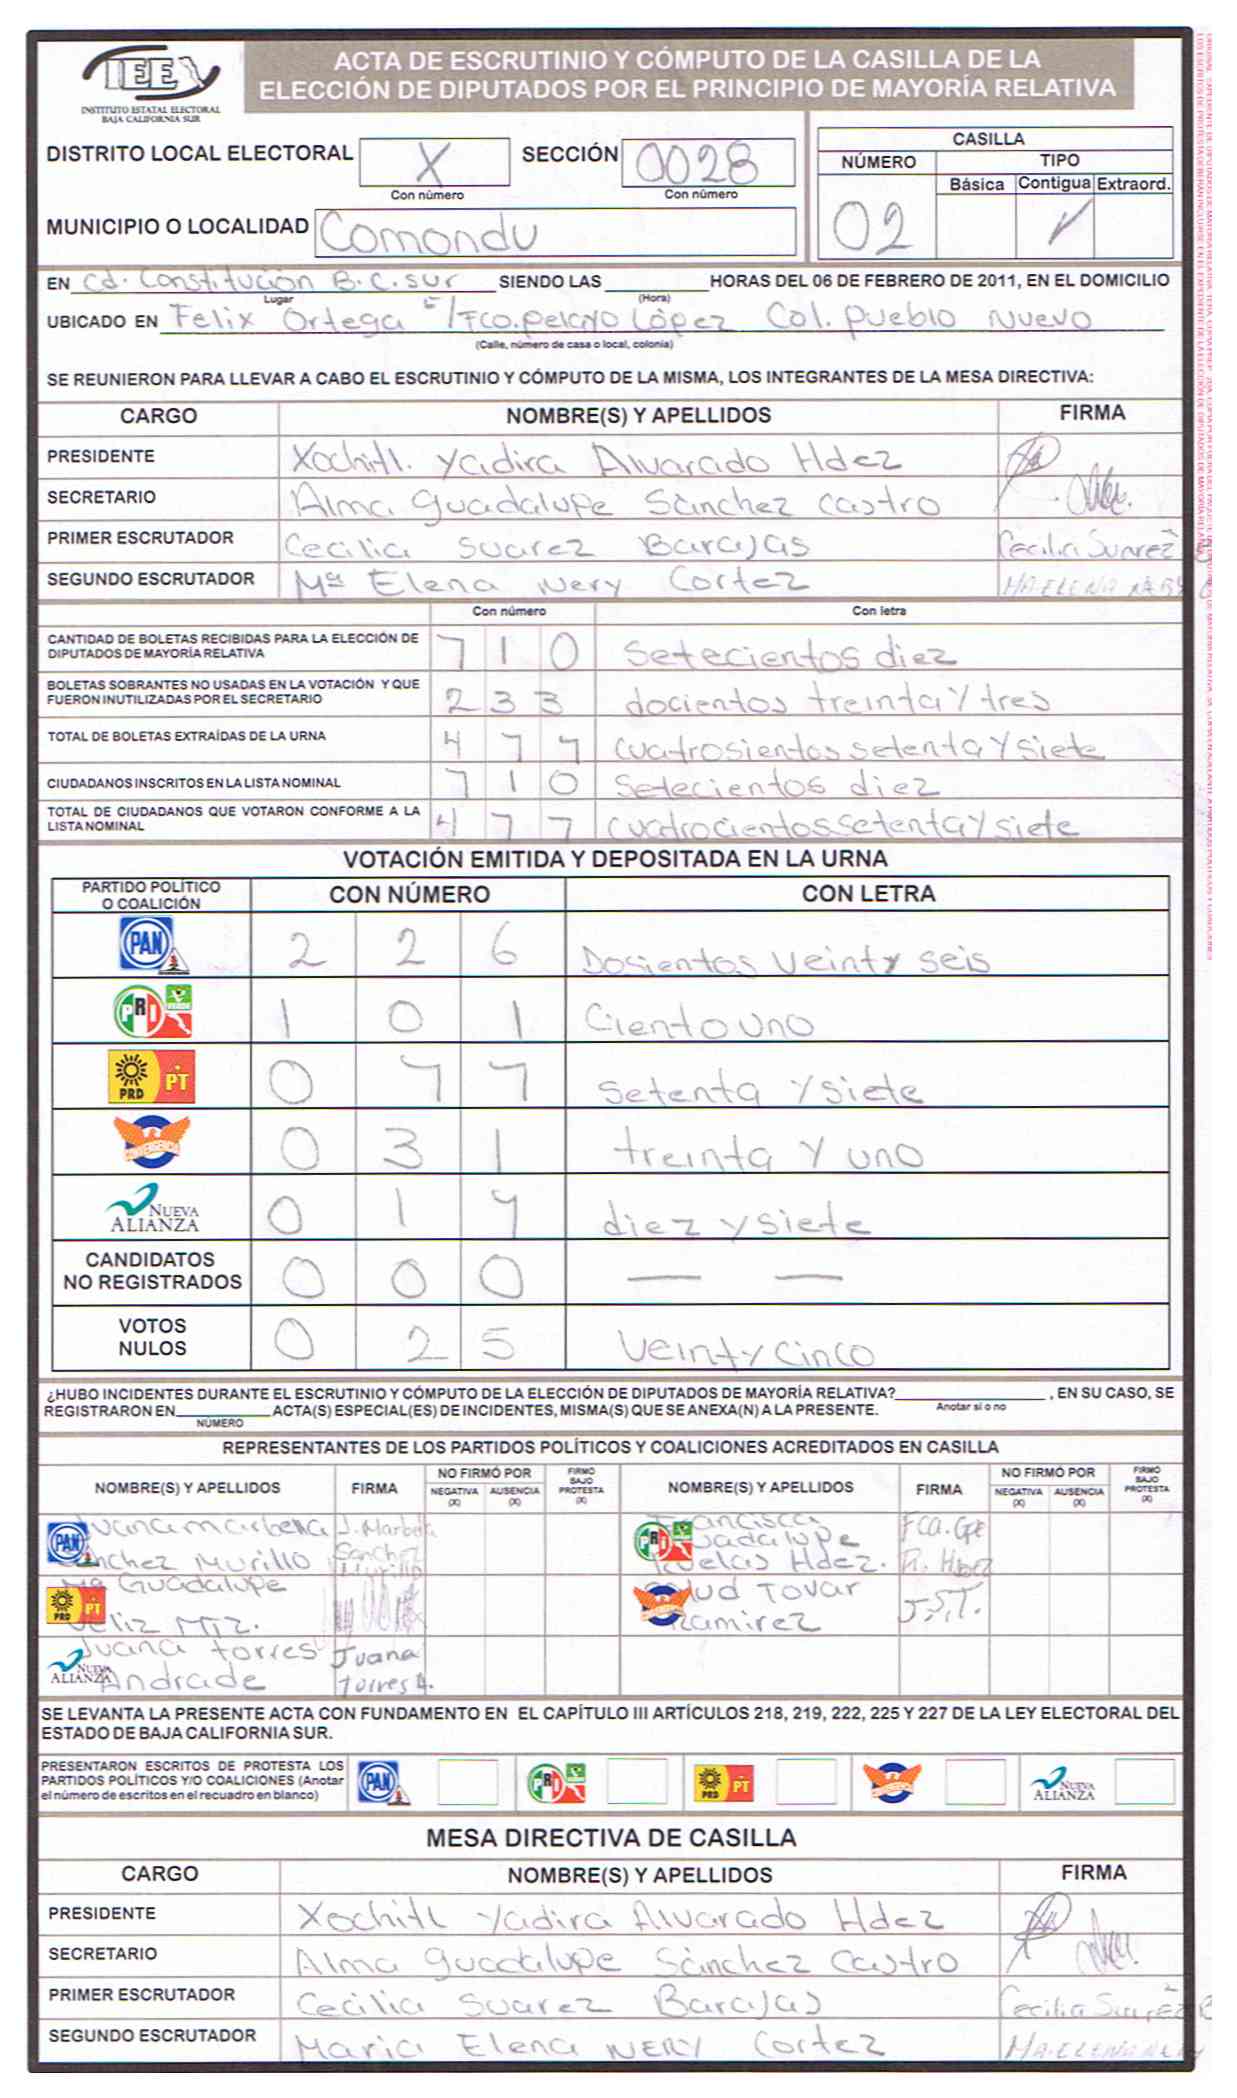 IEE
INSTITUTO ESTATAL ELECTORAL
BAJA CALIFORNIA SUR
ACTA DE ESCRUTINIO Y CÓMPUTO DE LA CASILLA DE LA
ELECCIÓN DE DIPUTADOS POR EL PRINCIPIO DE MAYORÍA RELATIVA
DISTRITO LOCAL ELECTORAL X SECCIÓN 0028
Con número Con número
MUNICIPIO O LOCALIDAD Comondu
CASILLA
NÚMERO TIPO
Básica Contigua Extraord.
02 ✓
EN cd. Constitución B.C.sur SIENDO LAS HORAS DEL 06 DE FEBRERO DE 2011, EN EL DOMICILIO
Lugar (Hora)
UBICADO EN Felix Ortega E/Fco.pelayo López Col. pueblo Nuevo
(Calle, número de casa o local, colonia)
SE REUNIERON PARA LLEVAR A CABO EL ESCRUTINIO Y CÓMPUTO DE LA MISMA, LOS INTEGRANTES DE LA MESA DIRECTIVA:
CARGO NOMBRE(S) Y APELLIDOS FIRMA
PRESIDENTE Xochitl. Yadira Alvarado Hdez
SECRETARIO Alma Guadalupe Sánchez Castro
PRIMER ESCRUTADOR Cecilia Suarez Barajas Cecilia Suarez B
SEGUNDO ESCRUTADOR Mª Elena Nery Cortez MA.ELENA NERY C
Con número Con letra
CANTIDAD DE BOLETAS RECIBIDAS PARA LA ELECCIÓN DE
DIPUTADOS DE MAYORÍA RELATIVA 7 1 0 Setecientos diez
BOLETAS SOBRANTES NO USADAS EN LA VOTACIÓN Y QUE
FUERON INUTILIZADAS POR EL SECRETARIO 2 3 3 docientos treinta Y tres
TOTAL DE BOLETAS EXTRAÍDAS DE LA URNA 4 7 7 cuatrosientos setenta Y siete
CIUDADANOS INSCRITOS EN LA LISTA NOMINAL 7 1 0 Setecientos diez
TOTAL DE CIUDADANOS QUE VOTARON CONFORME A LA
LISTA NOMINAL 4 7 7 cuatrocientos setenta y siete
VOTACIÓN EMITIDA Y DEPOSITADA EN LA URNA
PARTIDO POLÍTICO
O COALICIÓN CON NÚMERO CON LETRA
PAN 2 2 6 Dosientos Veinty seis
PRI VERDE 1 0 1 Ciento uno
PRD PT 0 7 7 setenta y siete
CONVERGENCIA 0 3 1 treinta Y uno
NUEVA ALIANZA 0 1 7 diez y siete
CANDIDATOS
NO REGISTRADOS 0 0 0 — —
VOTOS
NULOS 0 2 5 Veinty cinco
¿HUBO INCIDENTES DURANTE EL ESCRUTINIO Y CÓMPUTO DE LA ELECCIÓN DE DIPUTADOS DE MAYORÍA RELATIVA? , EN SU CASO, SE
Anotar sí o no
REGISTRARON EN ACTA(S) ESPECIAL(ES) DE INCIDENTES, MISMA(S) QUE SE ANEXA(N) A LA PRESENTE.
NÚMERO
REPRESENTANTES DE LOS PARTIDOS POLÍTICOS Y COALICIONES ACREDITADOS EN CASILLA
NOMBRE(S) Y APELLIDOS FIRMA NO FIRMÓ POR NEGATIVA (X) AUSENCIA (X) FIRMÓ BAJO PROTESTA (X) NOMBRE(S) Y APELLIDOS FIRMA NO FIRMÓ POR NEGATIVA (X) AUSENCIA (X) FIRMÓ BAJO PROTESTA (X)
PAN Juana marbella J. Marbella
Sanchez Murillo Sanchez Murillo
PRI Francisca Guadalupe Fca. Gpe
Ruelas Hdez. R. Hdez
PRD PT Ma Guadalupe
Veliz Mtz.
CONVERGENCIA Salud Tovar J.S.T.
Ramirez
NUEVA ALIANZA Juana torres Juana
Andrade torres A.
SE LEVANTA LA PRESENTE ACTA CON FUNDAMENTO EN EL CAPÍTULO III ARTÍCULOS 218, 219, 222, 225 Y 227 DE LA LEY ELECTORAL DEL
ESTADO DE BAJA CALIFORNIA SUR.
PRESENTARON ESCRITOS DE PROTESTA LOS
PARTIDOS POLÍTICOS Y/O COALICIONES (Anotar
el número de escritos en el recuadro en blanco)
PAN PRI VERDE PRD PT CONVERGENCIA NUEVA ALIANZA
MESA DIRECTIVA DE CASILLA
CARGO NOMBRE(S) Y APELLIDOS FIRMA
PRESIDENTE Xochitl Yadira Alvarado Hdez
SECRETARIO Alma Guadalupe Sánchez Castro
PRIMER ESCRUTADOR Cecilia Suarez Barajas Cecilia Suarez B
SEGUNDO ESCRUTADOR Maria Elena NERY Cortez MA.ELENA NERY